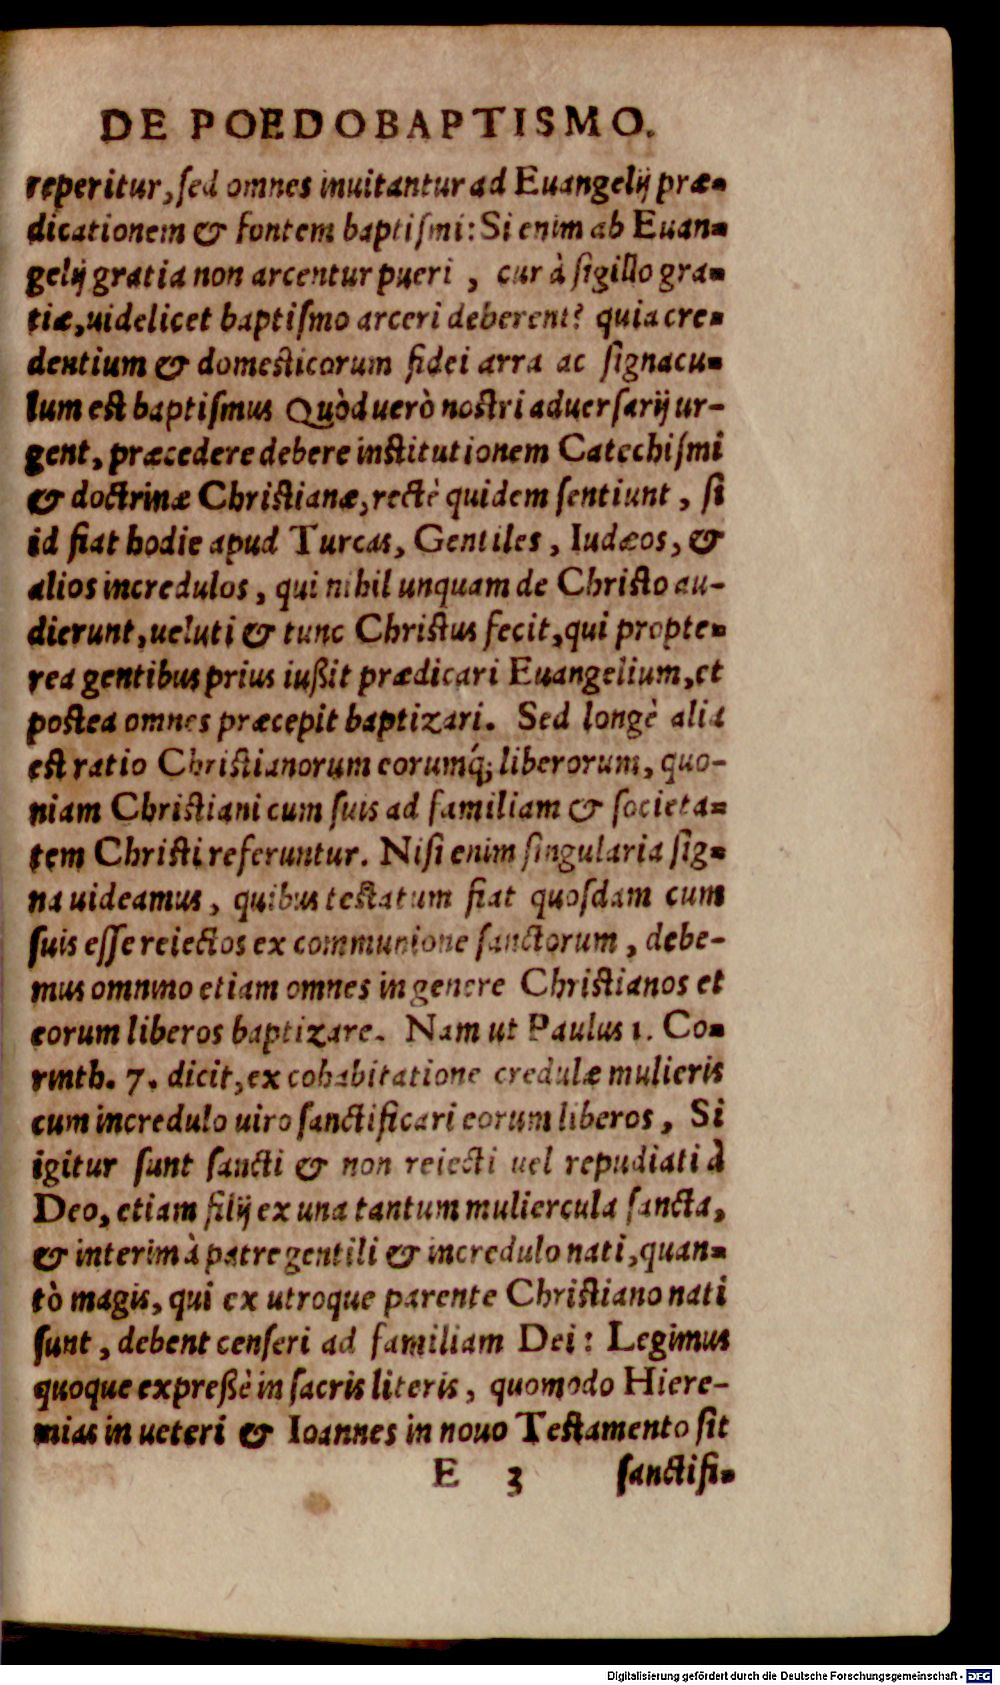 DE POEDOBAPTISMO.
reperitur, ſed omnes inuitantur ad Euangelij præ-
dicationem & fontem baptiſmi: Si enim ab Euan-
gelij gratia non arcentur pueri , cur à ſigillo gra-
tiæ, uidelicet baptiſmo arceri deberent? quia cre-
dentium & domeſticorum fidei arra ac ſignacu-
lum eſt baptiſmus Quòd uerò noſtri aduerſarij ur-
gent, præcedere debere inſtitutionem Catechiſmi
& doctrinæ Chriſtianæ, rectè quidem ſentiunt , ſi
id fiat hodie apud Turcas, Gentiles , Iudæos, &
alios incredulos , qui nihil unquam de Chriſto au-
dierunt, ueluti & tunc Chriſtus fecit, qui propte-
rea gentibus prius iußit prædicari Euangelium, et
poſtea omnes præcepit baptizari. Sed longè alia
eſt ratio Chriſtianorum eorumq́; liberorum, quo-
niam Chriſtiani cum ſuis ad familiam & ſocieta-
tem Chriſti referuntur. Niſi enim ſingularia ſig-
na uideamus , quibus teſtatum fiat quoſdam cum
ſuis eſſe reiectos ex communione ſanctorum , debe-
mus omnino etiam omnes in genere Chriſtianos et
eorum liberos baptizare. Nam ut Paulus 1. Co-
rinth. 7. dicit, ex cohabitatione credulæ mulieris
cum incredulo uiro ſanctificari eorum liberos , Si
igitur ſunt ſancti & non reiecti uel repudiati à
Deo, etiam filij ex una tantum muliercula ſancta,
& interim à patre gentili & incredulo nati, quan-
tò magis, qui ex utroque parente Chriſtiano nati
ſunt , debent cenſeri ad familiam Dei? Legimus
quoque expreßè in ſacris literis , quomodo Hiere-
mias in ueteri & Ioannes in nouo Teſtamento ſit
E 3 ſanctifi-
Digitalisierung gefördert durch die Deutsche Forschungsgemeinschaft - DFG